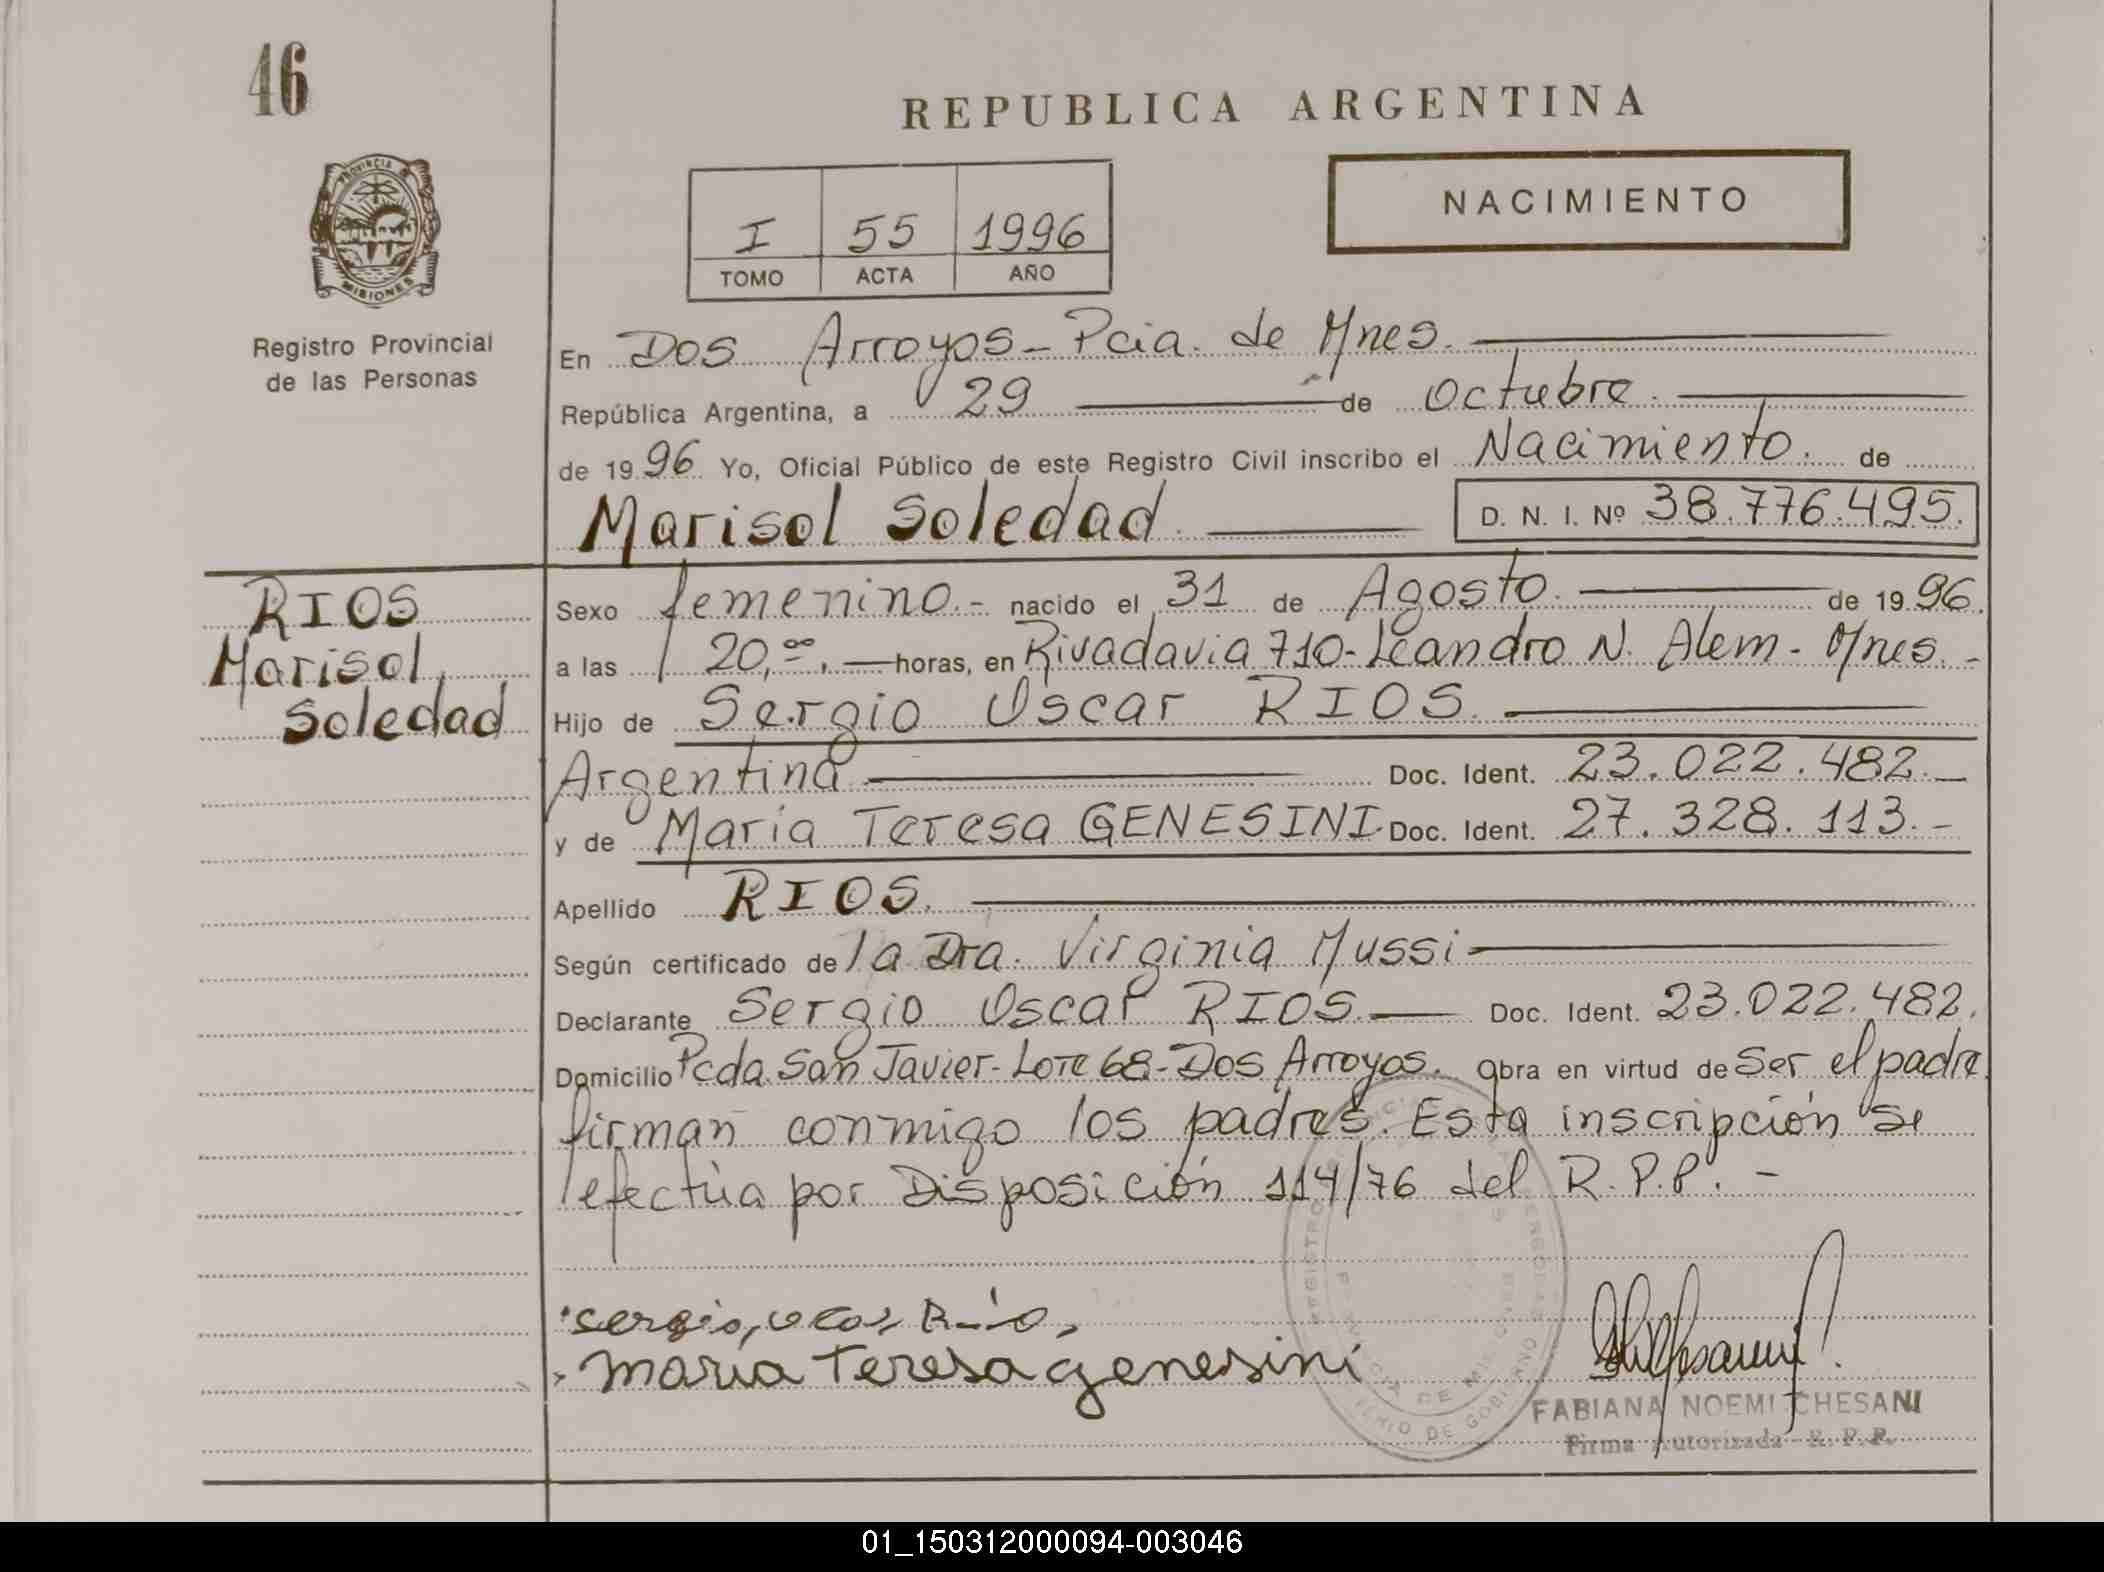 46
REPUBLICA ARGENTINA
PROVINCIA
MISIONES
NACIMIENTO
I 55 1996
TOMO ACTA AÑO
Registro Provincial
de las Personas
En Dos Arroyos - Pcia. de Mnes.
República Argentina, a 29 de Octubre.
de 1996. Yo, Oficial Público de este Registro Civil inscribo el Nacimiento. de
Marisol Soledad. D. N. I. Nº 38.776.495.
RIOS
Marisol
Soledad
Sexo femenino.- nacido el 31 de Agosto. de 1996.
a las 20,00, horas, en Rivadavia 710 - Leandro N. Alem - Mnes. -
Hijo de Sergio Oscar RIOS.
Argentina Doc. Ident. 23.022.482.-
y de Maria Teresa GENESINI. Doc. Ident. 27.328.113.-
Apellido RIOS.
Según certificado de la Dra. Virginia Mussi -
Declarante Sergio Oscar RIOS. Doc. Ident. 23.022.482.
Domicilio Pcda. San Javier - Lote 68 - Dos Arroyos. Obra en virtud de Ser el padre.
firman conmigo los padres. Esta inscripción se
efectúa por Disposición 114/76 del R.P.P. -
maria Teresa genesini
FABIANA NOEMI CHESANI
Firma Autorizada R. P. P.
01_150312000094-003046